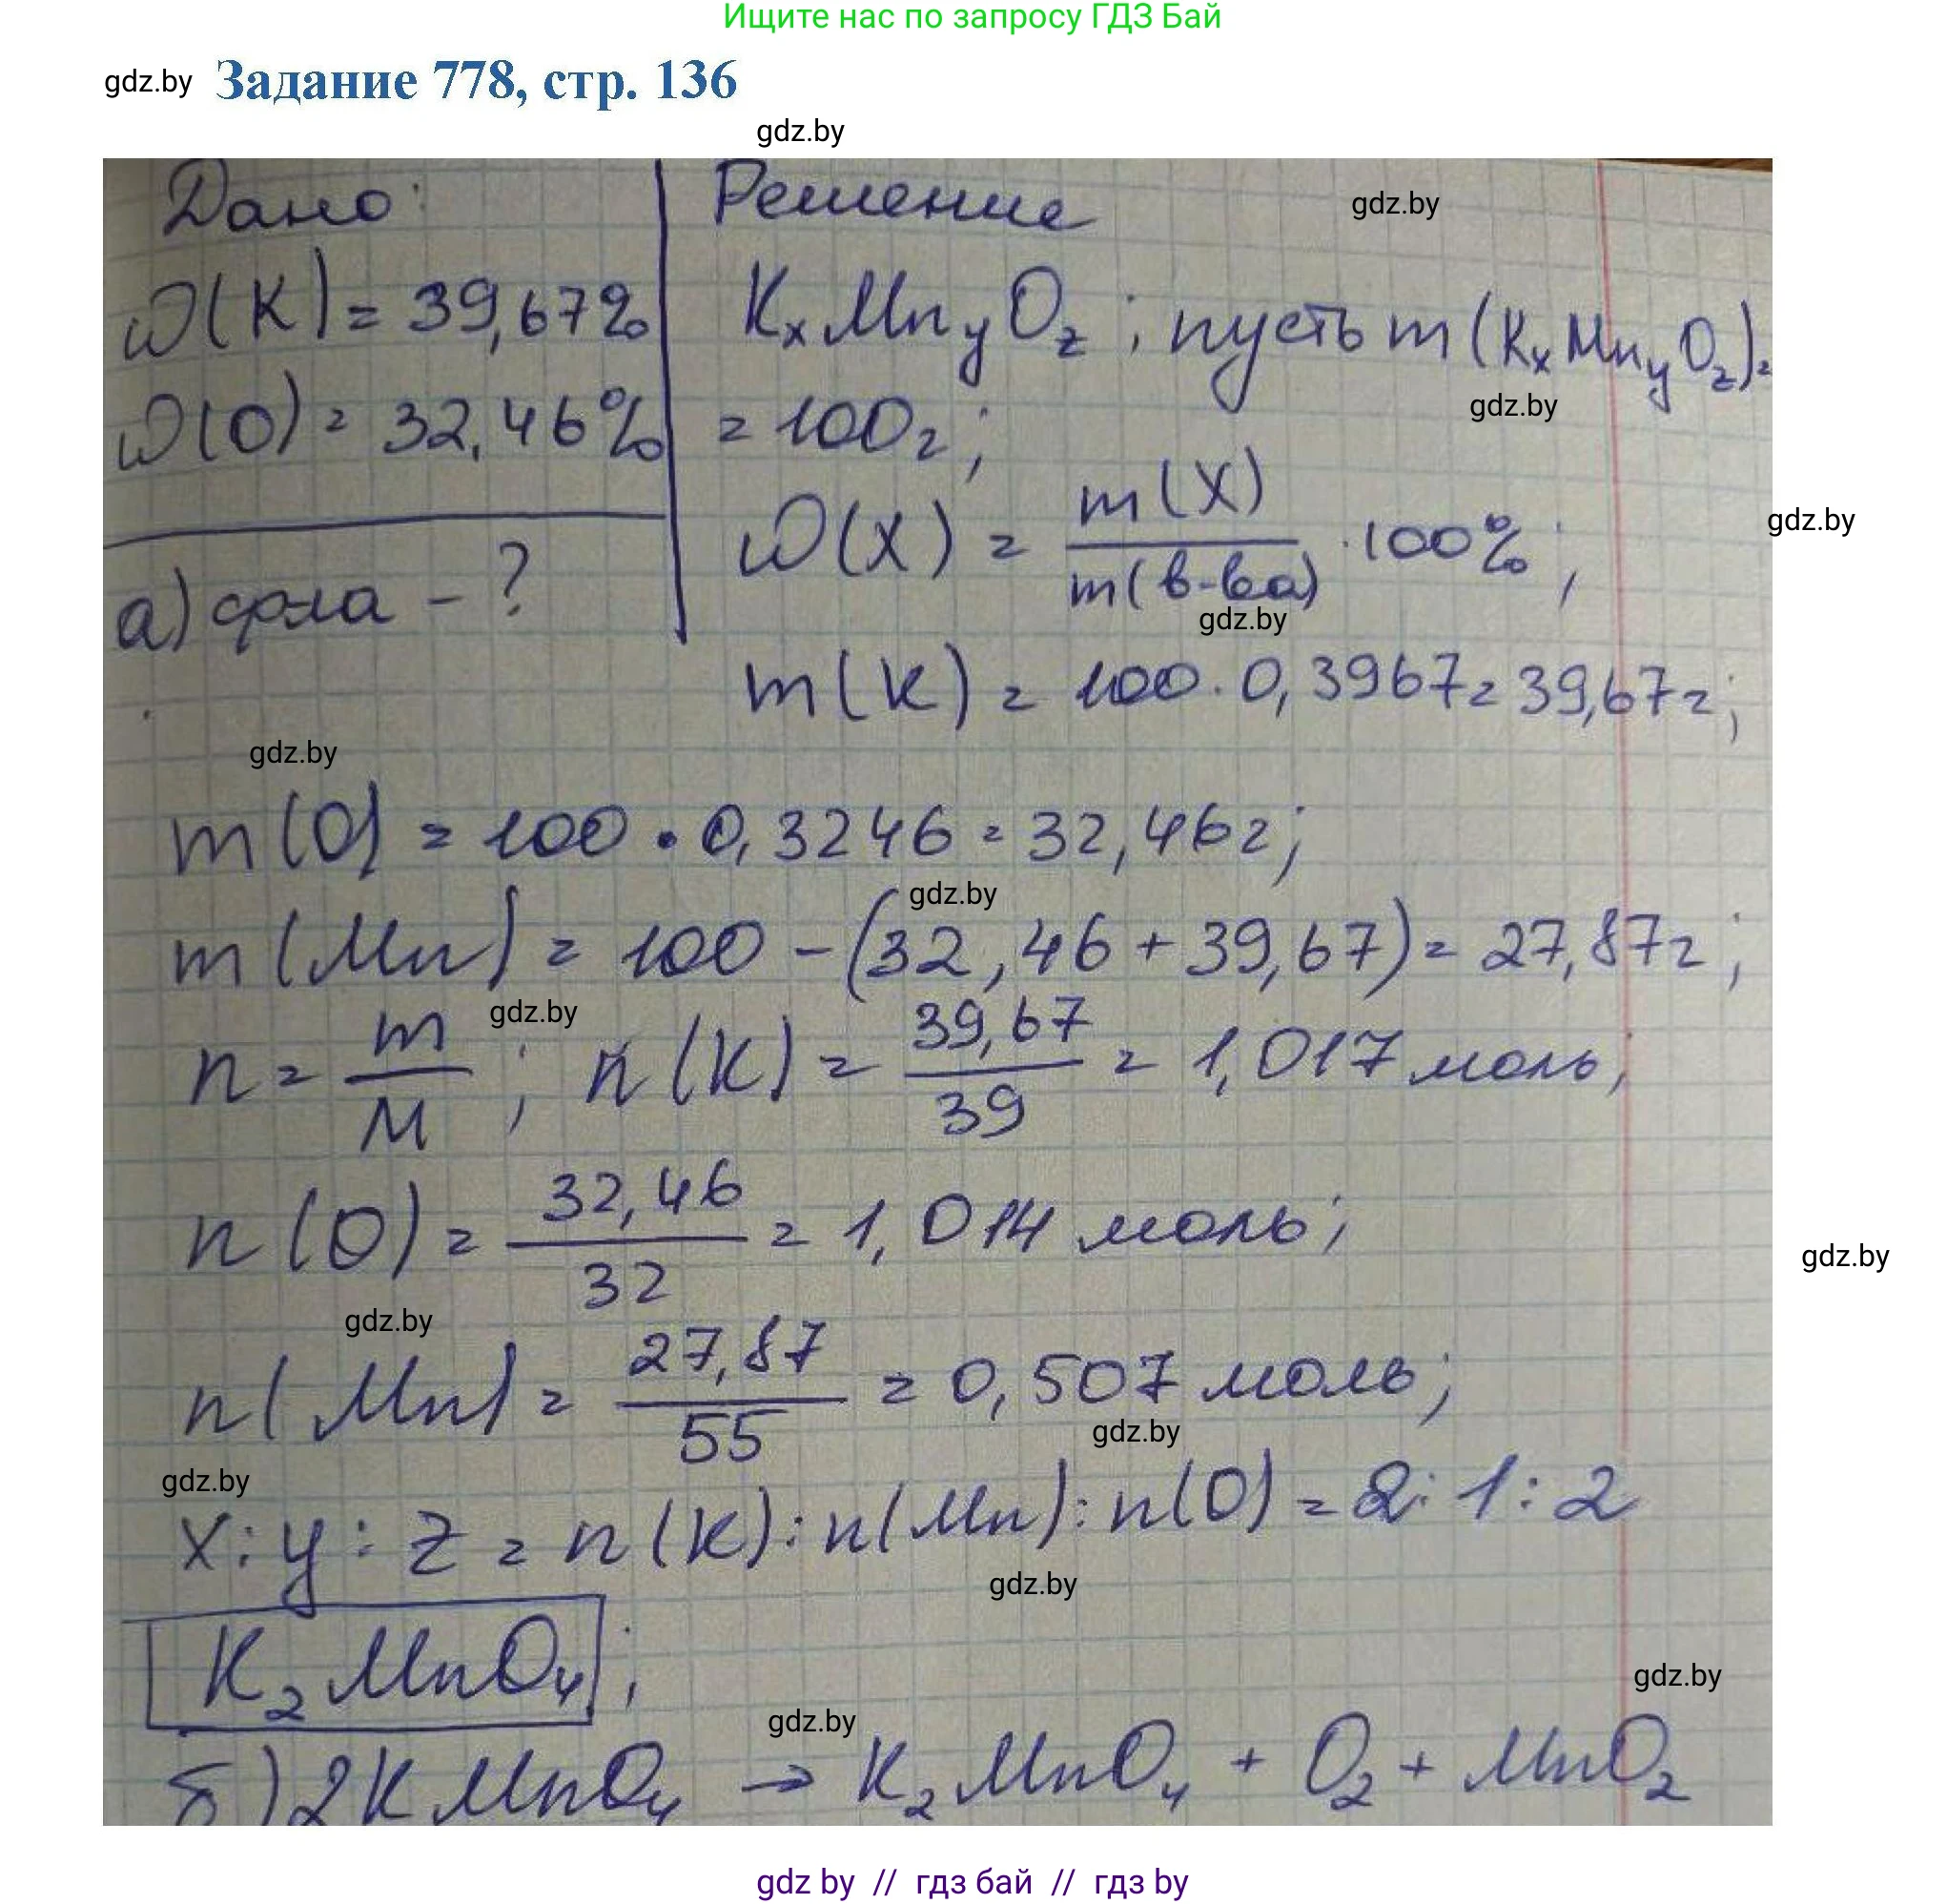 Ищите нас по запросу ГДЗ Бай
gdz.by Задание 778, стр. 136
gdz.by
Дано:
Решение
gdz.by
ω(K) = 39,67%
KxMnyOz; пусть m(KxMnyOz) =
gdz.by
ω(O) = 32,46%
= 100г;
ω(X) = m(X) / m(в-ва) · 100%;
gdz.by
а) ф-ла - ?
gdz.by
m(K) = 100 · 0,3967 = 39,67г;
gdz.by
m(O) = 100 · 0,3246 = 32,46г;
gdz.by
m(Mn) = 100 - (32,46 + 39,67) = 27,87г;
gdz.by
n = m / M; n(K) = 39,67 / 39 = 1,017 моль;
n(O) = 32,46 / 32 = 1,014 моль;
gdz.by
gdz.by
n(Mn) = 27,87 / 55 = 0,507 моль;
gdz.by
gdz.by
x : y : z = n(K) : n(Mn) : n(O) = 2 : 1 : 2
gdz.by
K2MnO4;
gdz.by
gdz.by
б) 2KMnO4 → K2MnO4 + O2 + MnO2
gdz by // гдз бай // гдз by